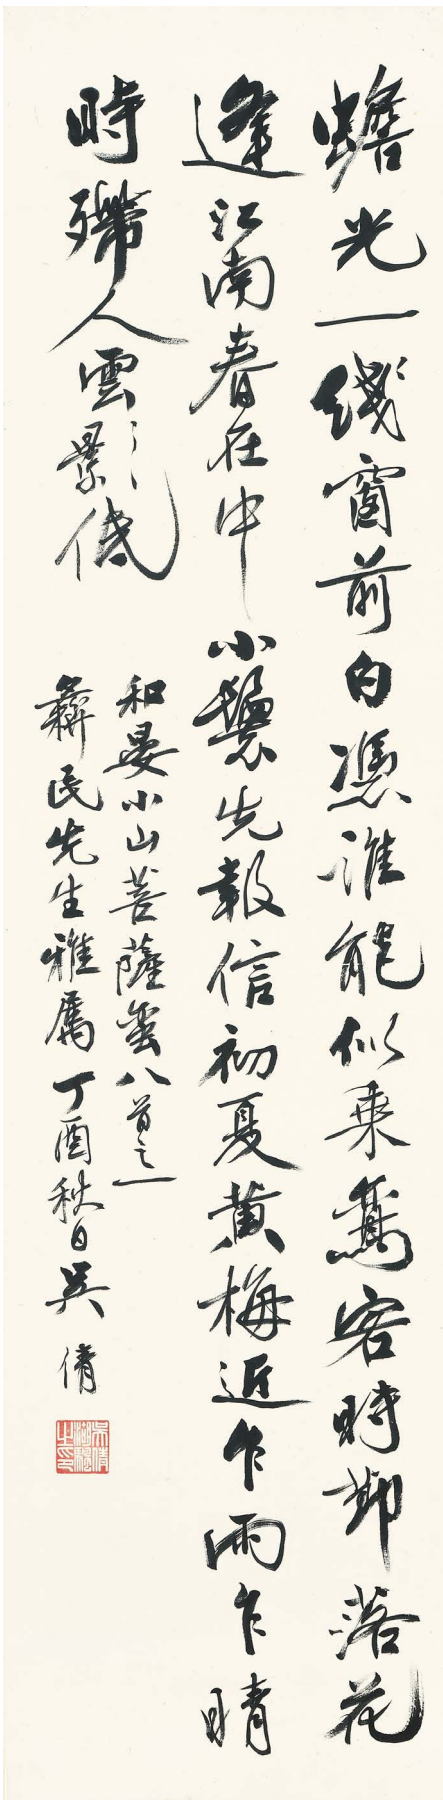 蟾光一綫窗前白憑誰能似乘鸞客時節落花
逢江南春在中小鬟先報信初夏黃梅近乍雨乍晴
時殢人雲影低
和晏小山菩薩蠻八首之一
彝民先生雅屬丁酉秋日吳倩
吳倩湖帆之印